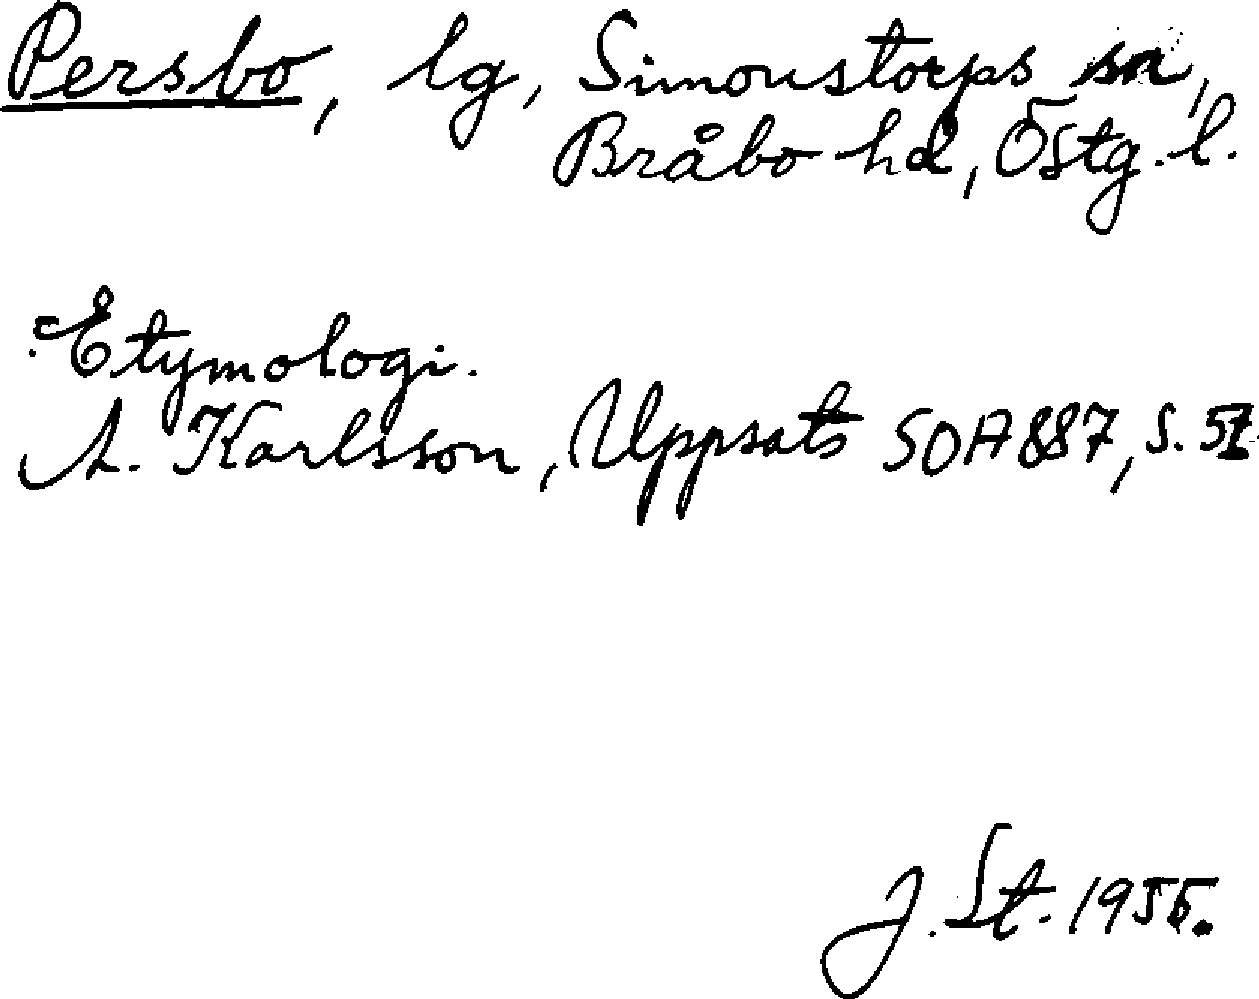 Persbo, lg, Simonstorps sn,
Bråbo hd, Östg. l.
Etymologi.
A. Karlsson, Uppsats SOA 887, s.
J. St. 1955.